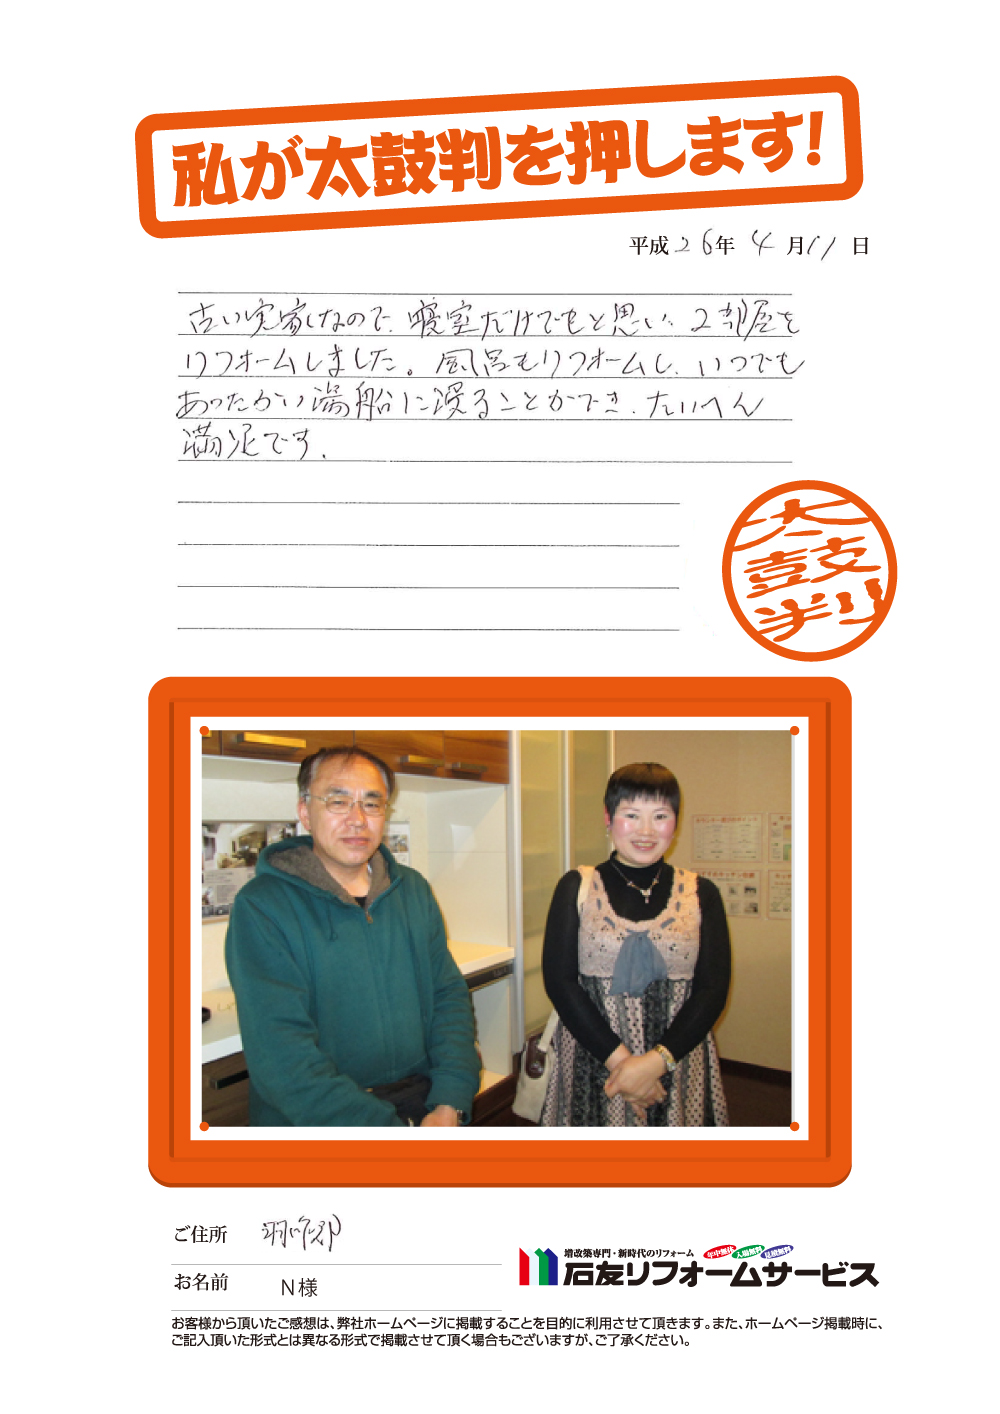 私が太鼓判を押します!
平成26年 4月11日
古い実家なので、寝室だけでもと思い、2部屋を
リフォームしました。風呂もリフォームし、いつでも
あったかい湯船に浸ることができ、たいへん
満足です。
太鼓判
ご住所 羽咋郡
お名前 N様
増改築専門・新時代のリフォーム
年中無休 入場無料 見積無料
石友リフォームサービス
お客様から頂いたご感想は、弊社ホームページに掲載することを目的に利用させて頂きます。また、ホームページ掲載時に、
ご記入頂いた形式とは異なる形式で掲載させて頂く場合もございますが、ご了承ください。